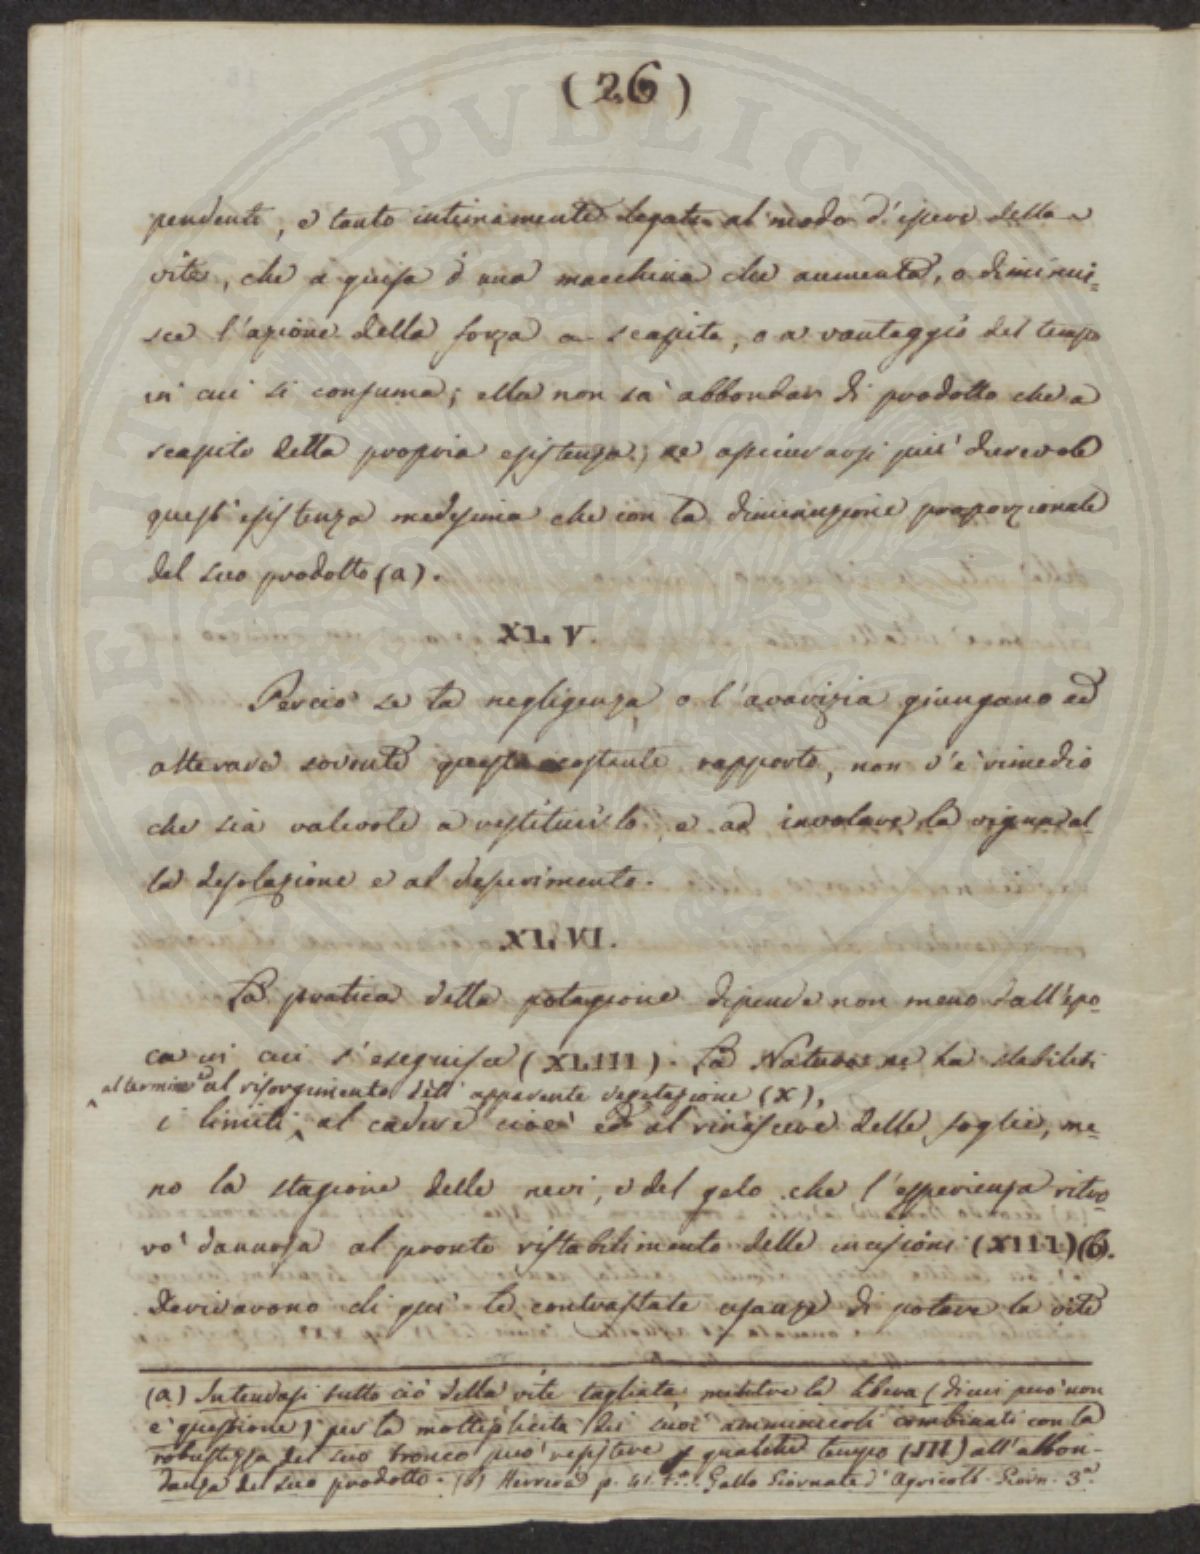 (26)
pendenti, e tanto intimamente legate al modo d'essere della
vite, che a guisa d'una macchina che aumenta, o diminui=
sce l'azione della forza a scapito, o a vantaggio del tempo
in cui si consuma; ella non sa abbondar di prodotto che a
scapito della propria esistenza; ne assicurarsi più durevole
quest'esistenza medesima che con la diminuzione proporzionale
del suo prodotto (a).
XL.V.
Perciò se la negligenza, o l'avarizia giungano ad
alterare sovente questo costante rapporto, non v'è rimedio
che sia valevole a restituirlo, e ad involare la vigna al=
la desolazione e al deperimento.
XL.VI.
La pratica della potagione dipende non meno dall'epo=
ca in cui s'eseguisca (XLIII). La Natura ne ha stabiliti
al termine e al risorgimento dell'apparente vegetazione (X),
i limiti ‸ al cadere cioè ed al rinascere delle foglie, me=
no la stagione delle nevi, e del gelo che l'esperienza ritro=
vò dannosa al pronto ristabilimento delle incisioni (XIII) (b).
Derivarono di quì le contrastate usanze di potare la vite
(a) Intendasi tutto ciò della vite tagliata, mentre la libera (di cui però non
è questione) per la moltiplicità dei suoi amminicoli combinati con la
robustezza del suo tronco può resistere qualche tempo (III) all'abbon-
danza del suo prodotto. (b) Herrera p. 41. Gallo Giornate d'Agricolt. Giorn. 3ª.
PERITAS PVBLICA